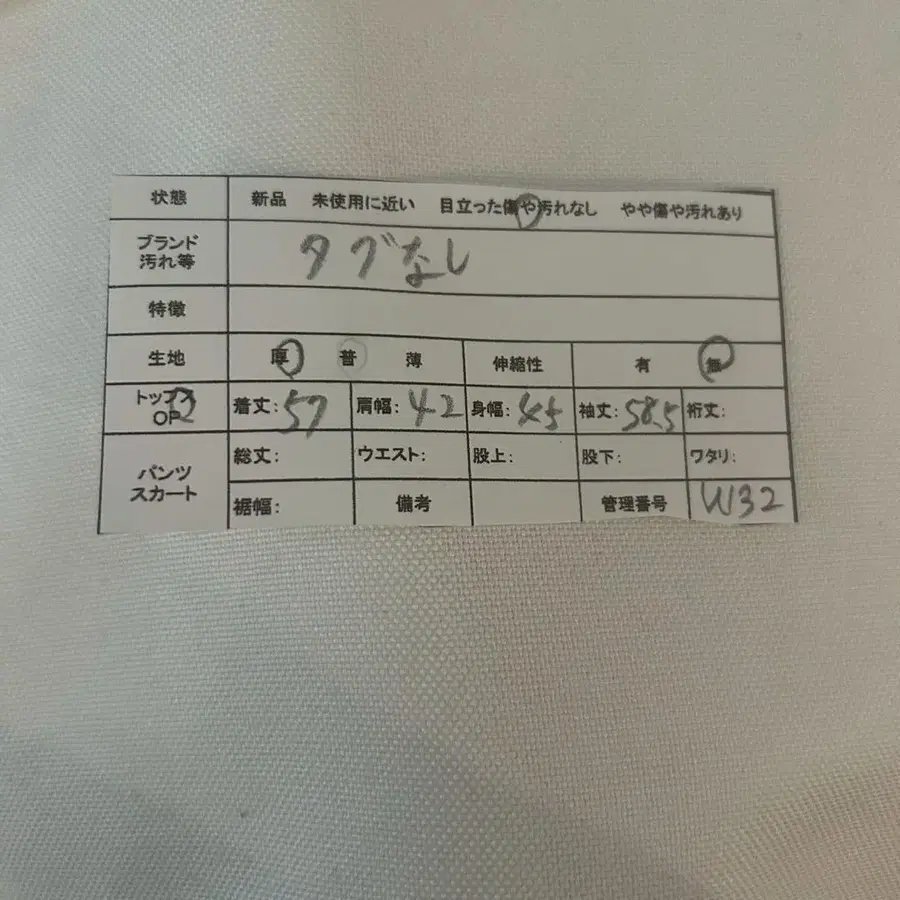 状態 新品 未使用に近い 目立った傷や汚れなし やや傷や汚れあり
ブランド
汚れ等 タグなし
特徴
生地 厚 普 薄 伸縮性 有 無
トップス
OP 着丈:57 肩幅:42 身幅:45 袖丈:58.5 裄丈:
パンツ
スカート 総丈: ウエスト: 股上: 股下: ワタリ:
裾幅: 備考 管理番号 W32